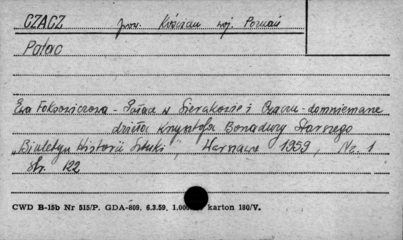 CZACZ pow. Kościan woj. Poznań
Pałac
Ewa Fokowiczowa - Pałace w Sierakowie i Czaczu - domniemane
dzieła Krysztofa Bonadury Starszego
„Bialetyn Historii Sztuki", Warszawa 1959, No. 1
str. 122
CWD B-15b Nr 515/P. GDA-809. 6.3.59. 1.000 karton 180/V.